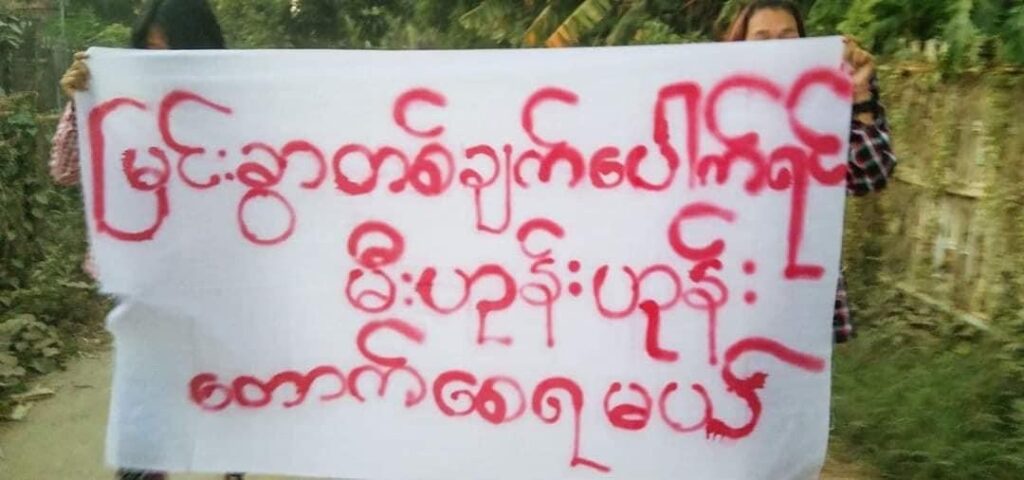 မြင်းခွာတစ်ချက်ပေါက်ရင်
မီးဟုန်းဟုန်း
တောက်စေရမယ်